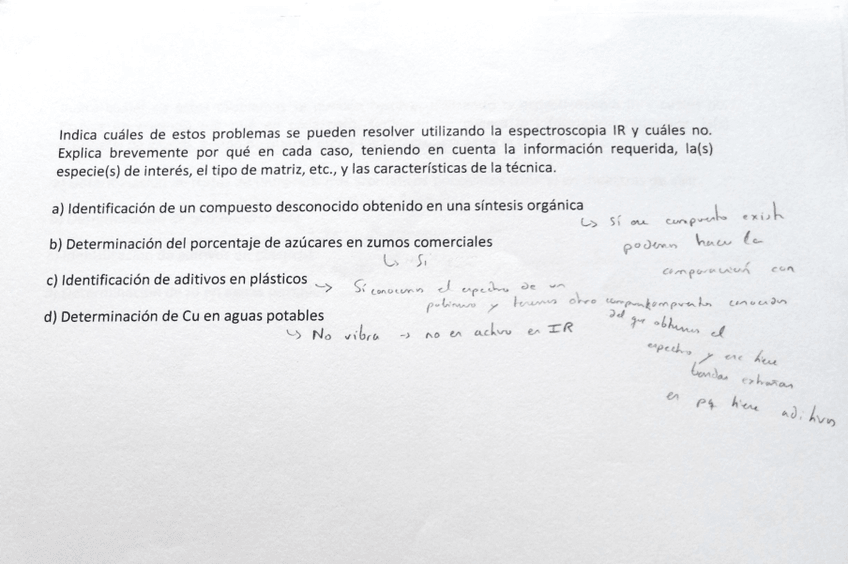 Indica cuáles de estos problemas se pueden resolver utilizando la espectroscopia IR y cuáles no.
Explica brevemente por qué en cada caso, teniendo en cuenta la información requerida, la(s)
especie(s) de interés, el tipo de matriz, etc., y las características de la técnica.
a) Identificación de un compuesto desconocido obtenido en una síntesis orgánica
↳ Sí ese compuesto existe
podemos hacer la
comparación con
compuesto conocidos
b) Determinación del porcentaje de azúcares en zumos comerciales
↳ Si
c) Identificación de aditivos en plásticos → Si conocemos el espectro de un
polímero y tenemos otro
del que obtenemos el
espectro y ese tiene
bandas extrañas
es pq tiene aditivos
d) Determinación de Cu en aguas potables
↳ No vibra → no es activo en IR